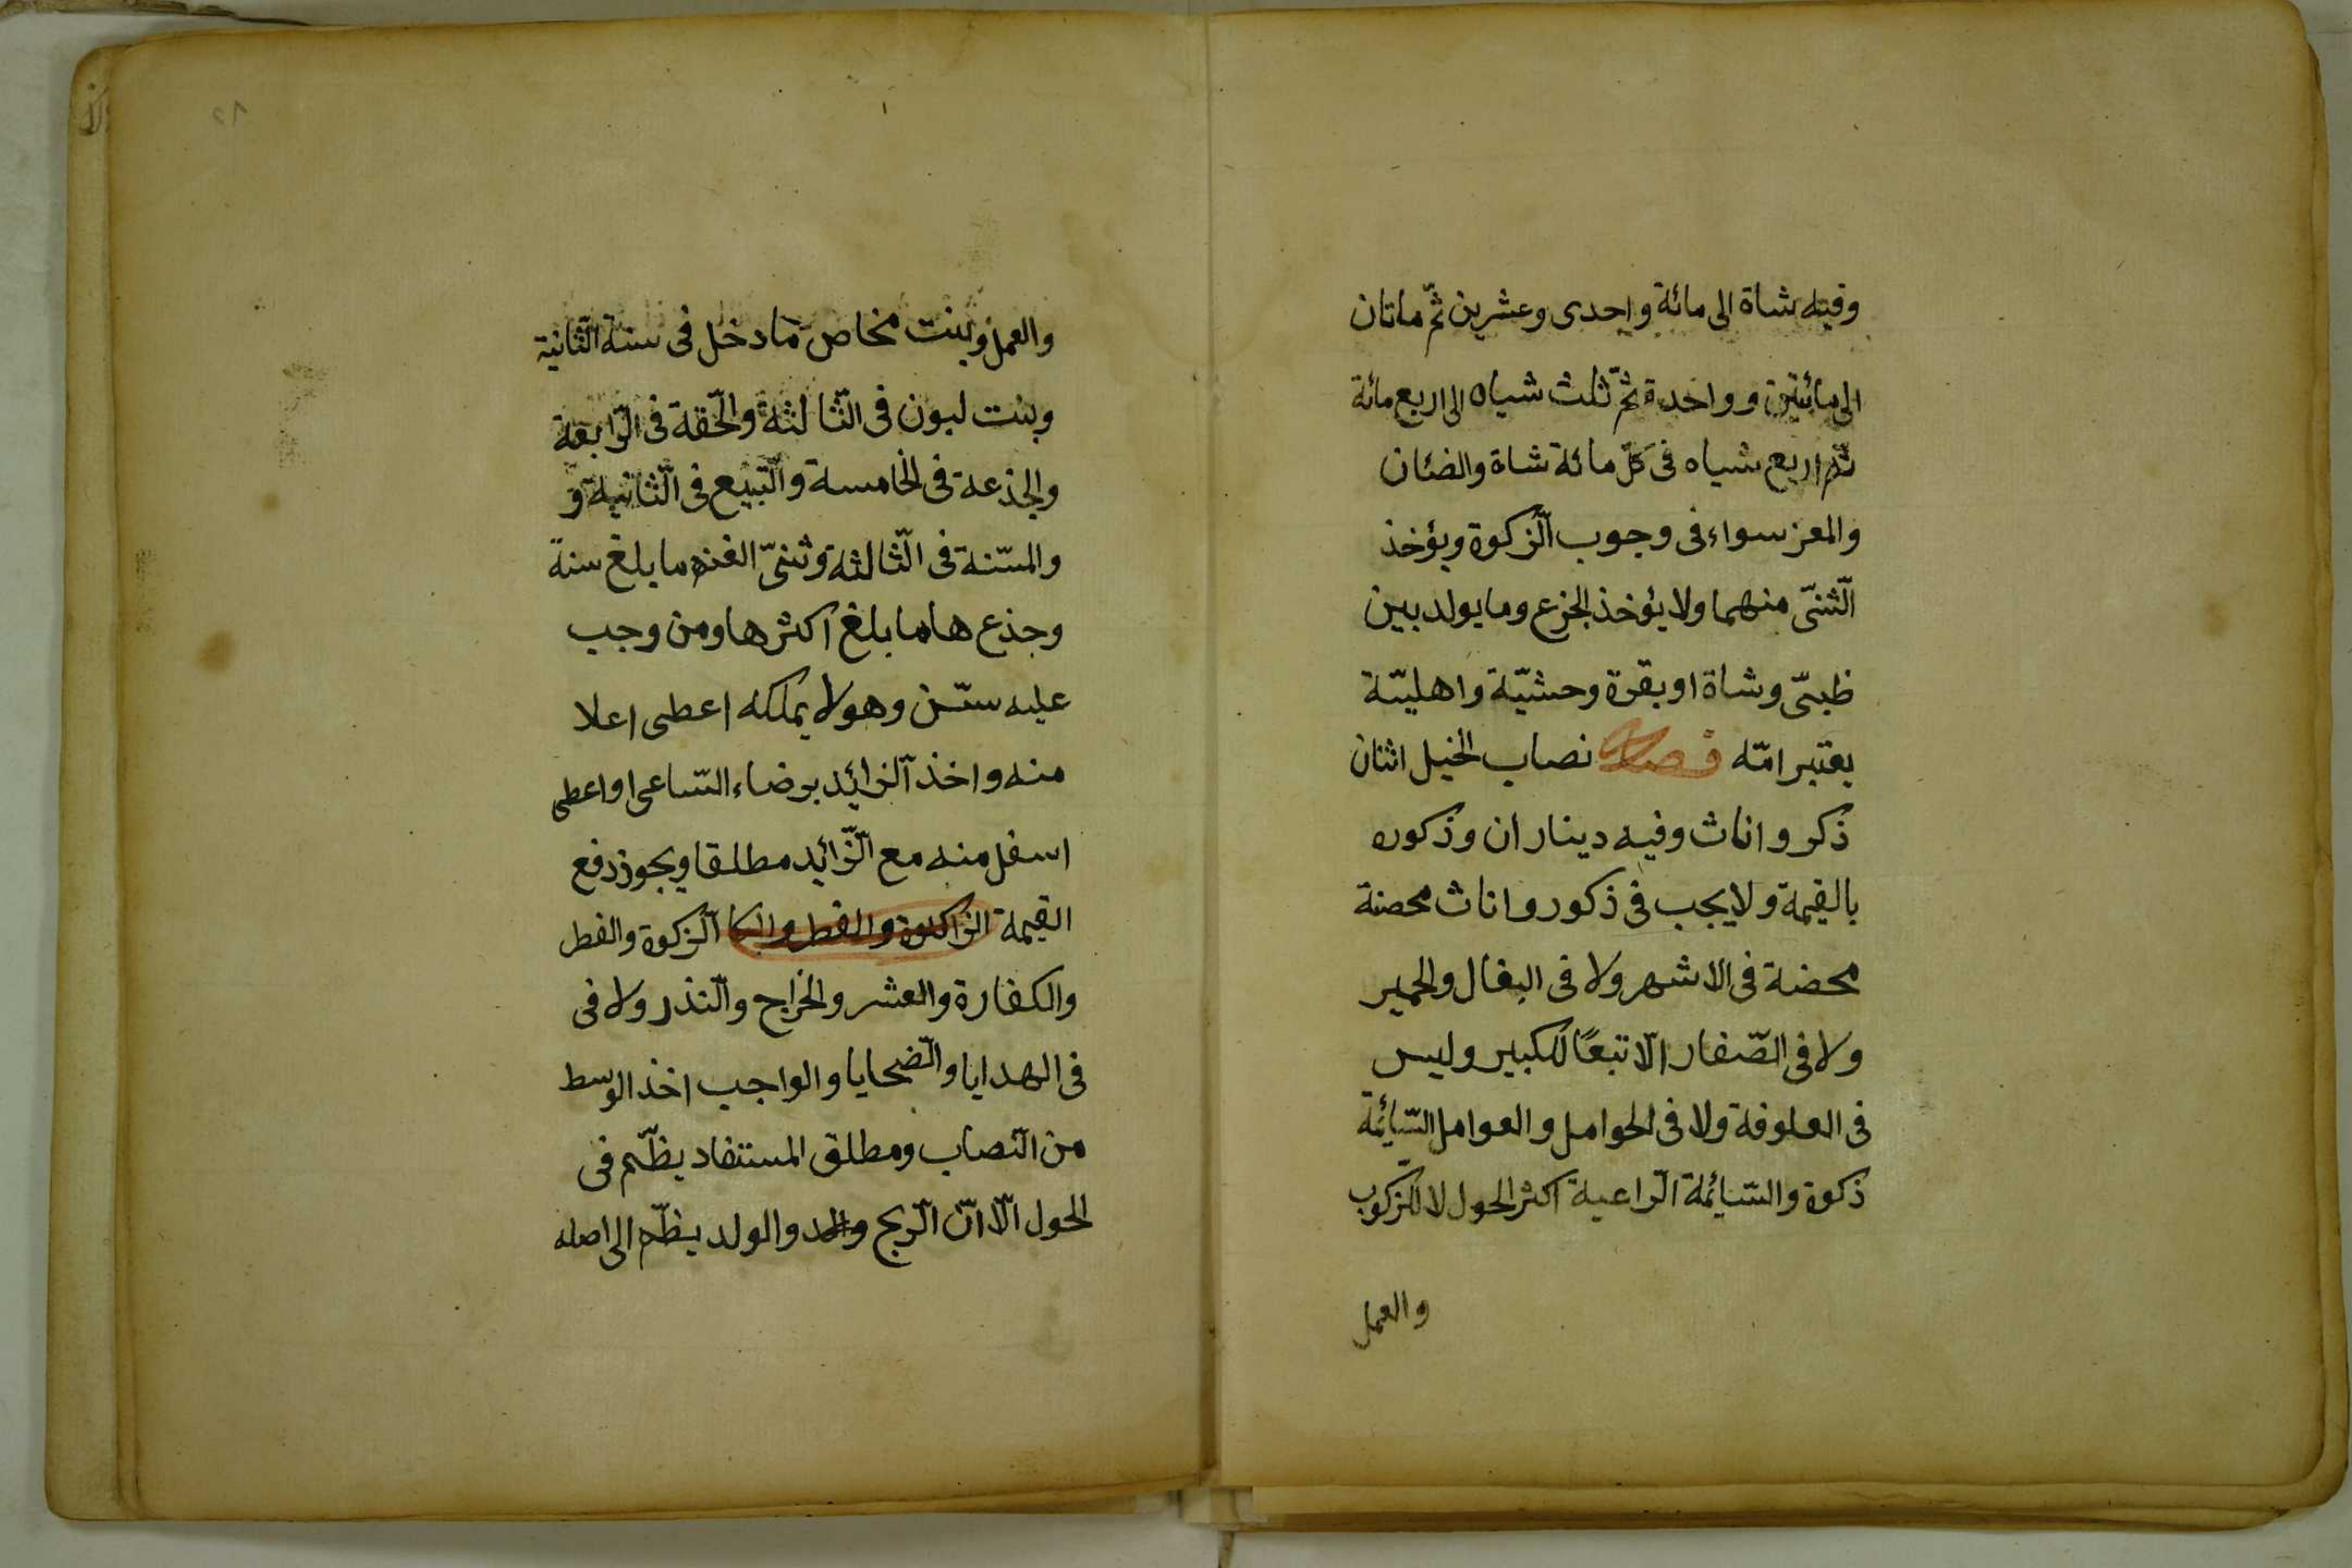 وفيه شاة الى مائة واحدى وعشرين ثمّ ماتان
الى مائتين وواحدة ثمّ ثلث شياه الى اربع مائة
ثم اربع شياه فى كلّ مائة شاة والضئان
والمعز سواء فى وجوب الّزكوة ويؤخذ
الّثنىّ منهما ولا يؤخذ الجزع وما يولد بين
ظبىّ وشاة او بقرة وحشيّة واهليّة
يعتبر امّه فصل نصاب الخيل اثنان
ذكر واناث وفيه ديناران وذكوره
بالقيمة ولا يجب فى ذكور واناث محصنة
محضة فى الاشهر ولا فى البغال والحمير
ولا فى الصّغار الّا تبعًا للكبير وليس
فى العلوفة ولا فى الحوامل والعوامل السّائمة
ذكوة والسّائمة الّراعية اكثر الحول لا للّركوب
والعمل
والعمل وبنت مخاض ما دخل فى سنة الثّانية
وبنت لبون فى الّثالثة والحّقة فى الرّابعة
والجذعة فى الخامسة والتّبيع فى الّثانية و
والمسّنة فى الّثالثة وثنىّ الغنم ما بلغ سنة
وجذع هاما بلغ اكثرها ومن وجب
عليه سّن وهو لا يملكه اعطى اعلا
منه واخذ الّزائد برضاء السّاعى او اعطى
اسفل منه مع الّزائد مطلقا ويجوز دفع
القيمة الزاكوة والفطر والكا الّزكوة والفطر
والكفارة والعشر والخراج والّنذر ولا فى
فى الهدايا والّضحايا والواجب اخذ الوسط
من الّنصاب ومطلق المستفاد يظّم فى
الحول الّا انّ الّربح والد والولد يظّم الى اصله